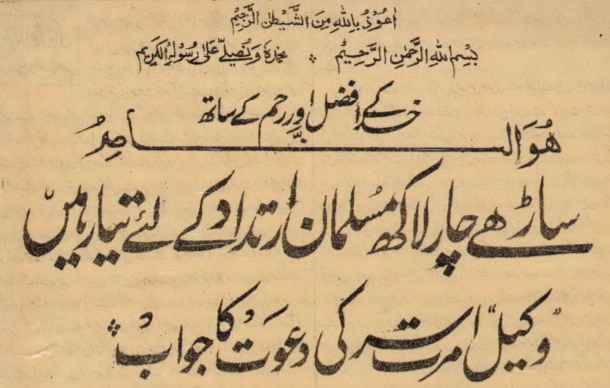 اعوذ باللہ من الشیطن الرجیم
بسم اللہ الرحمن الرحیم ❖ نحمدہ ونصلی علی رسولہ الکریم
خدا کے فضل اور رحم کے ساتھ
ھُوَ النَّاصِرُ
ساڑھے چار لاکھ مسلمان ارتداد کے لئے تیار ہیں
"وکیل" امرتسر کی دعوت کا جواب ❖